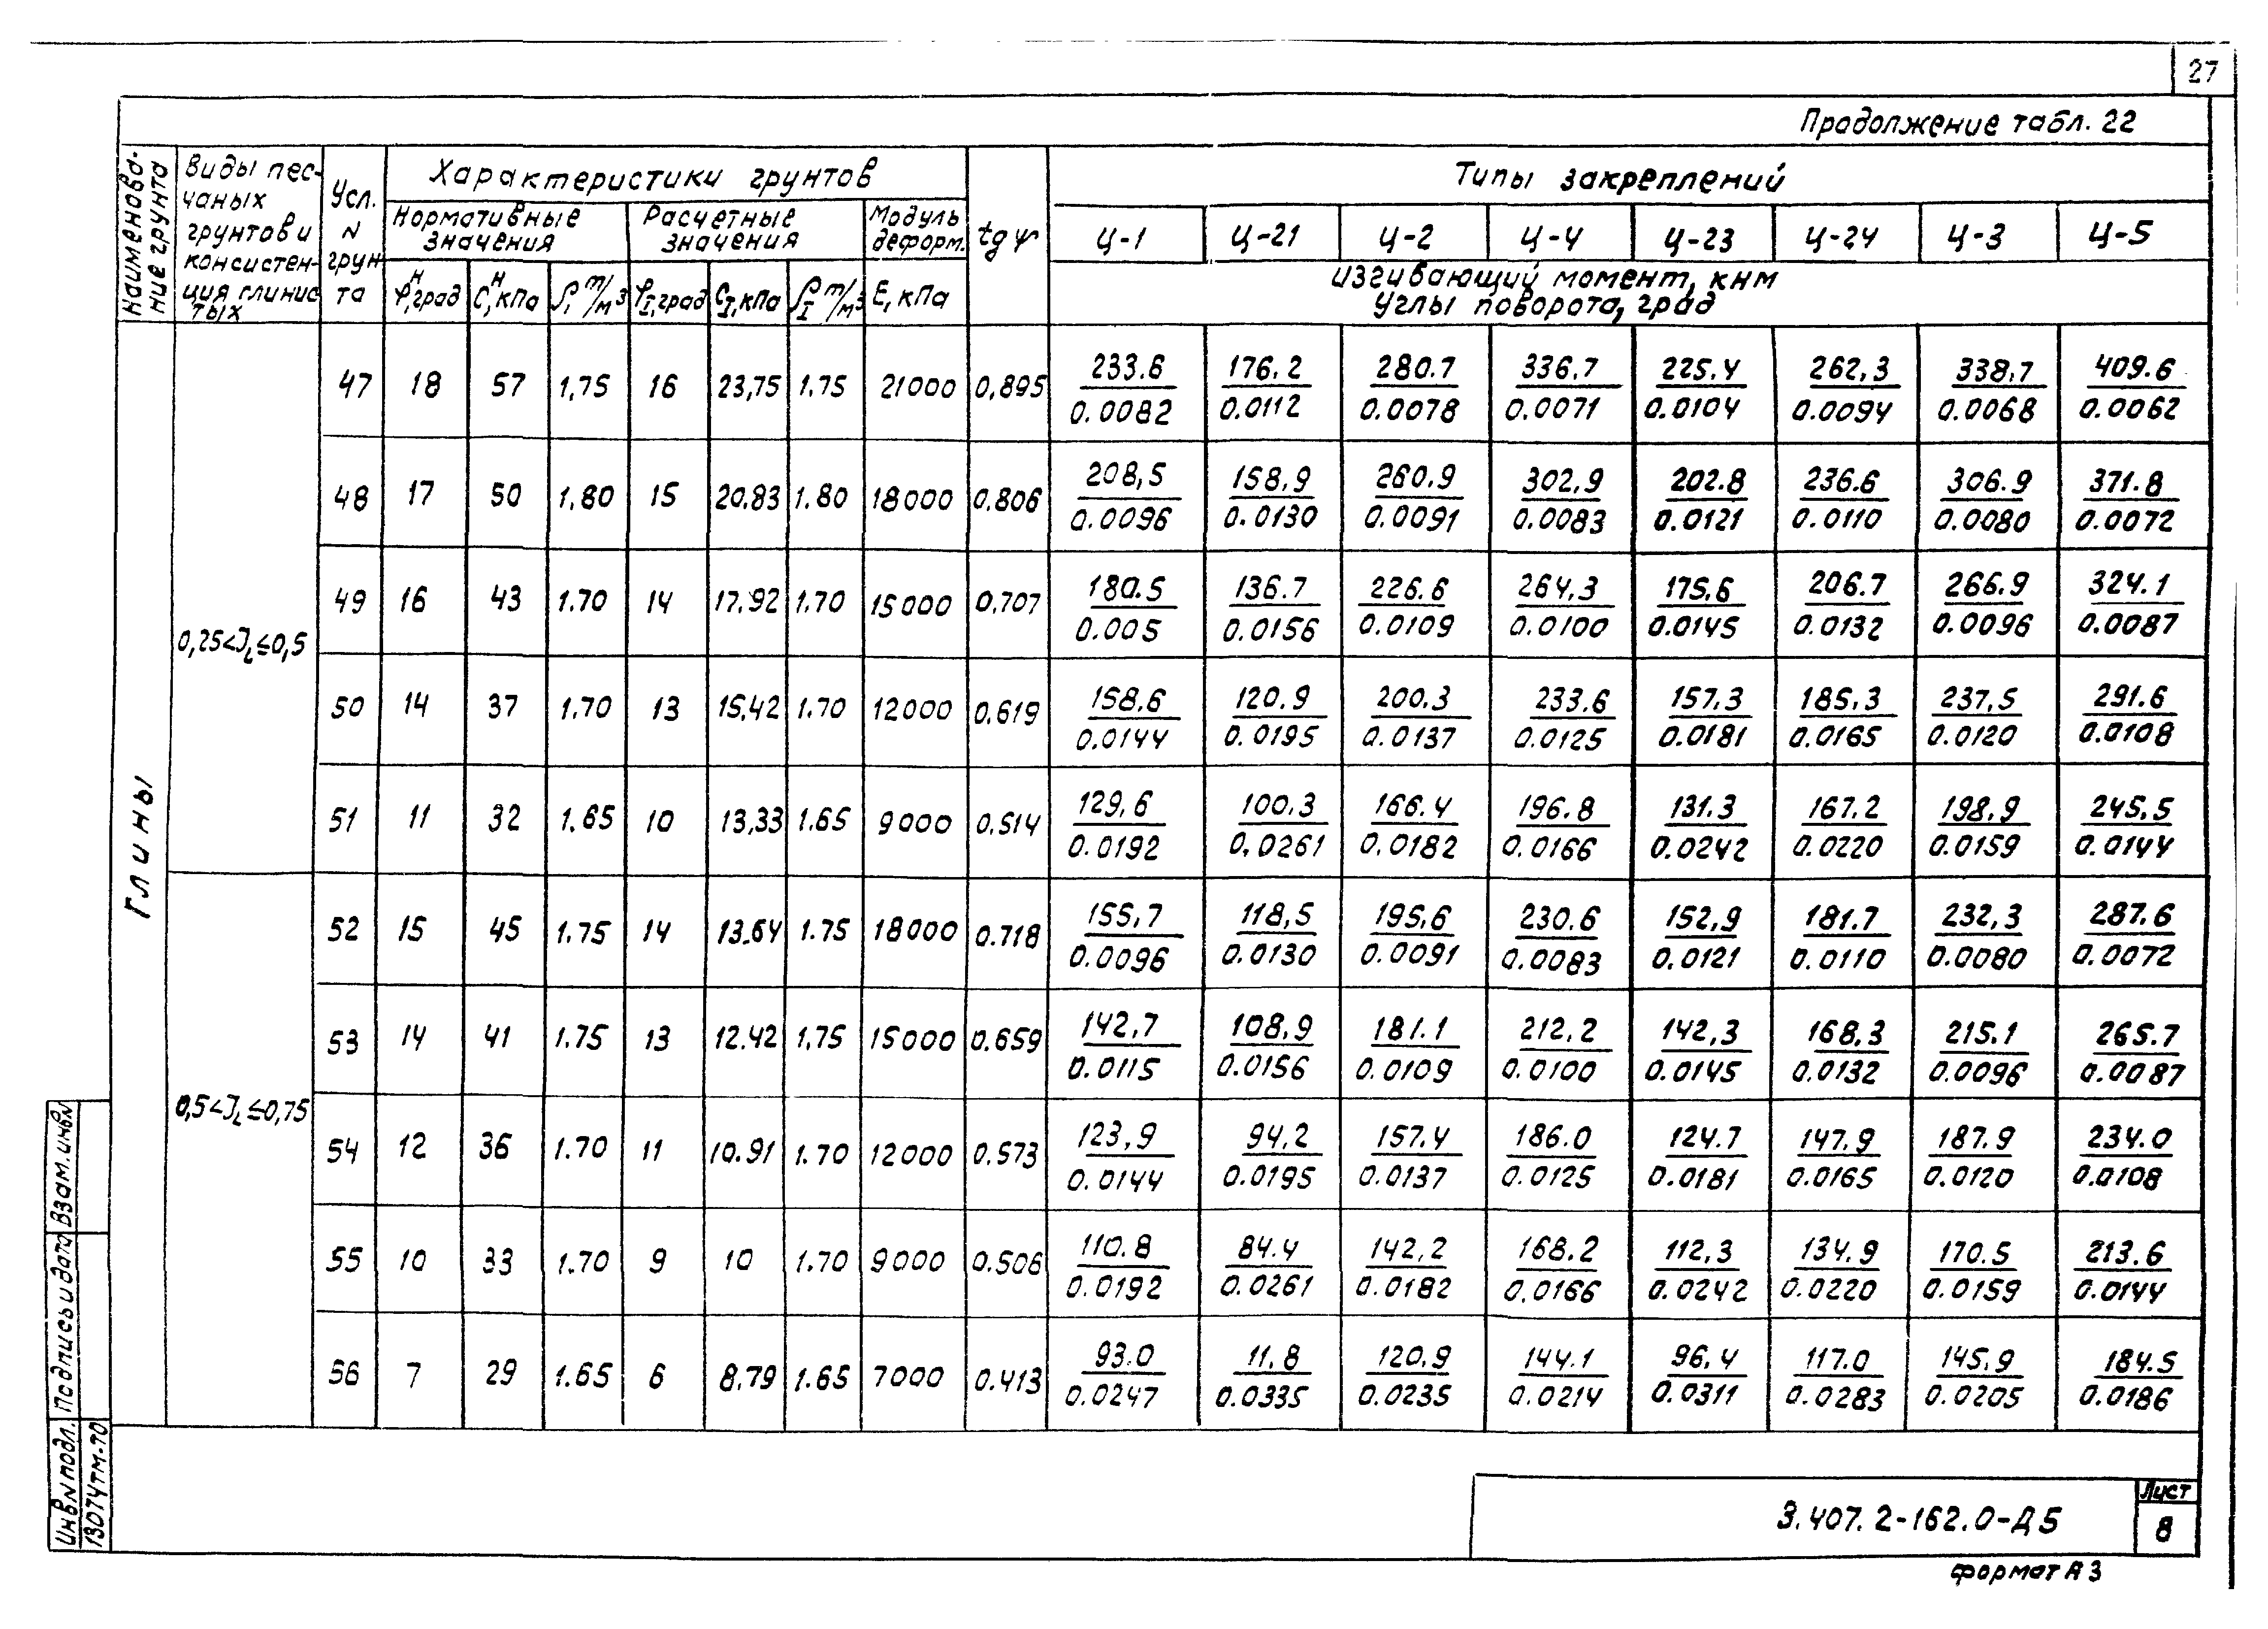 27
Продолжение табл. 22
Наименование грунта
Виды песчаных грунтов и консистенция глинистых
Усл. N грунта
Характеристики грунтов
Нормативные значения
Расчетные значения
Модуль деформ.
tg ψ
Типы закреплений
φᴴ, град
Cᴴ, кПа
ρ, т/м³
φI, град
CI, кПа
ρI т/м³
E, кПа
Ц-1 Ц-21 Ц-2 Ц-4 Ц-23 Ц-24 Ц-3 Ц-5
изгибающий момент, кнм
Углы поворота, град
Глины
0,25<JL≤0,5
47 18 57 1,75 16 23,75 1.75 21000 0,895 233.6 176,2 280.7 336,7 225.4 262,3 338,7 409.6
0.0082 0.0112 0.0078 0.0071 0.0104 0.0094 0.0068 0.0062
48 17 50 1.80 15 20.83 1.80 18000 0.806 208,5 158,9 260.9 302,9 202.8 236.6 306.9 371.8
0.0096 0.0130 0.0091 0.0083 0.0121 0.0110 0.0080 0.0072
49 16 43 1.70 14 17.92 1.70 15000 0,707 180.5 136.7 226.6 264,3 175,6 206.7 266.9 324.1
0.005 0.0156 0.0109 0.0100 0.0145 0.0132 0.0096 0.0087
50 14 37 1.70 13 15,42 1.70 12000 0.619 158.6 120.9 200.3 233.6 157.3 185,3 237,5 291.6
0.0144 0.0195 0.0137 0.0125 0.0181 0.0165 0.0120 0.0108
51 11 32 1.65 10 13,33 1.65 9000 0.514 129,6 100,3 166.4 196.8 131.3 167.2 198,9 245,5
0.0192 0,0261 0.0182 0.0166 0.0242 0.0220 0.0159 0.0144
0,5<JL≤0,75
52 15 45 1.75 14 13.64 1.75 18000 0.718 155,7 118,5 195,6 230.6 152,9 181.7 232,3 287.6
0.0096 0.0130 0.0091 0.0083 0.0121 0.0110 0.0080 0.0072
53 14 41 1.75 13 12.42 1,75 15000 0.659 142,7 108,9 181.1 212,2 142,3 168,3 215.1 265.7
0.0115 0.0156 0.0109 0.0100 0.0145 0.0132 0.0096 0.0087
54 12 36 1.70 11 10.91 1.70 12000 0.573 123,9 94,2 157.4 186.0 124.7 147.9 187.9 234.0
0.0144 0.0195 0.0137 0.0125 0.0181 0.0165 0.0120 0.0108
55 10 33 1.70 9 10 1.70 9000 0.506 110.8 84.4 142,2 168.2 112,3 134.9 170.5 213.6
0.0192 0.0261 0.0182 0.0166 0.0242 0.0220 0.0159 0.0144
56 7 29 1.65 6 8.79 1.65 7000 0.413 93.0 11,8 120.9 144.1 96,4 117.0 145,9 184.5
0.0247 0.0335 0.0235 0.0214 0.0311 0.0283 0.0205 0.0186
Взам. инв.N
Подпись и дата
Инв.N подл.
13074тм-т0
3.407.2-162.0-Д5
Лист
8
формат А3